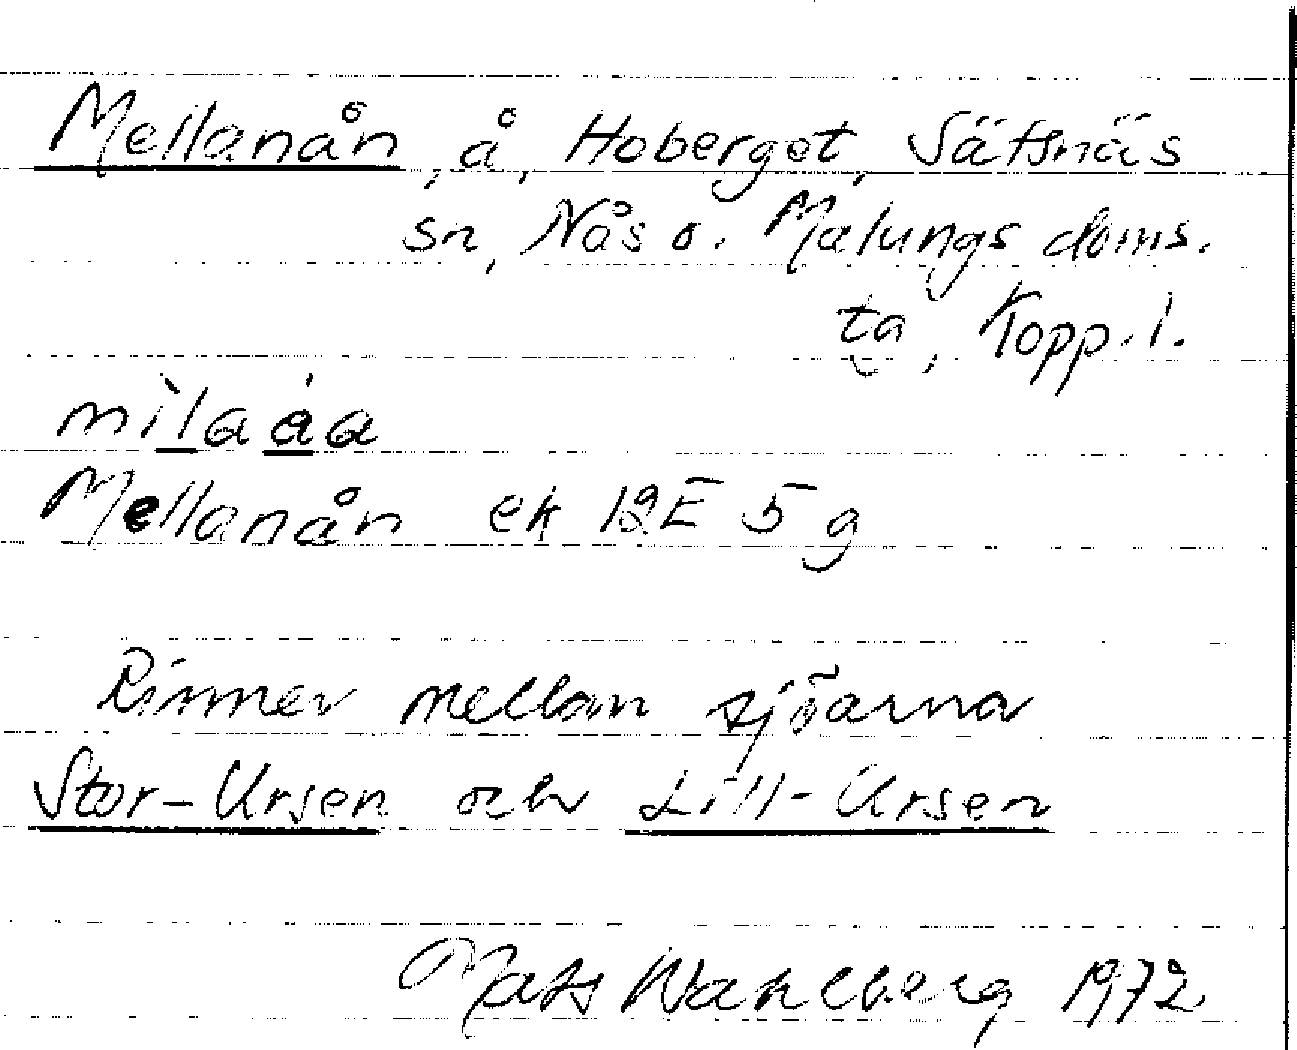 Mellanån, å, Hoberget, Säfsnäs
sn, Nås o. Malungs doms.
ta, Kopp. l.
mìlaáa
Mellanån ek 12E 5g
Rinner mellan sjöarna
Stor-Ursen och Lill-Ursen
Mats Wahlberg 1972